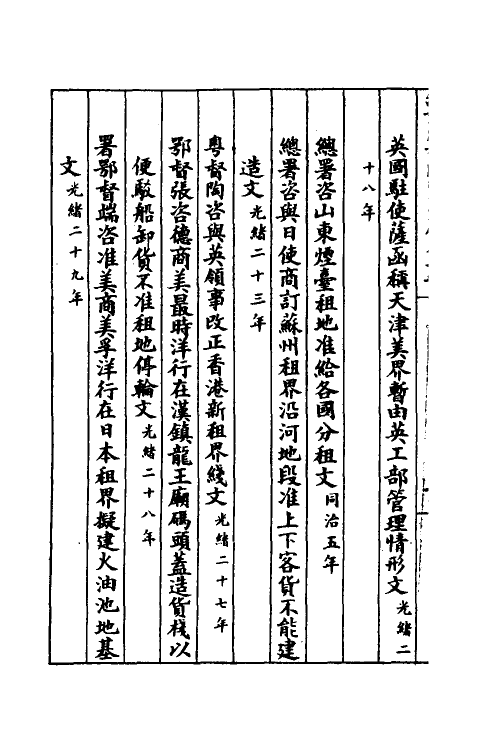 英國駐使薩函稱天津美界暫由英工部管理情形文光緒二
十八年
總署咨山東煙臺租地准給各國分租文同治五年
總署咨與日使商訂蘇州租界沿河地段准上下客貨不能建
造文光緒二十三年
粵督陶咨與英領事改正香港新租界綫文光緒二十七年
鄂督張咨德商美最時洋行在漢鎮龍王廟碼頭蓋造貨棧以
便駁船卸貨不准租地停輪文光緒二十八年
署鄂督端咨准美商美孚洋行在日本租界擬建火油池地基
文光緒二十九年